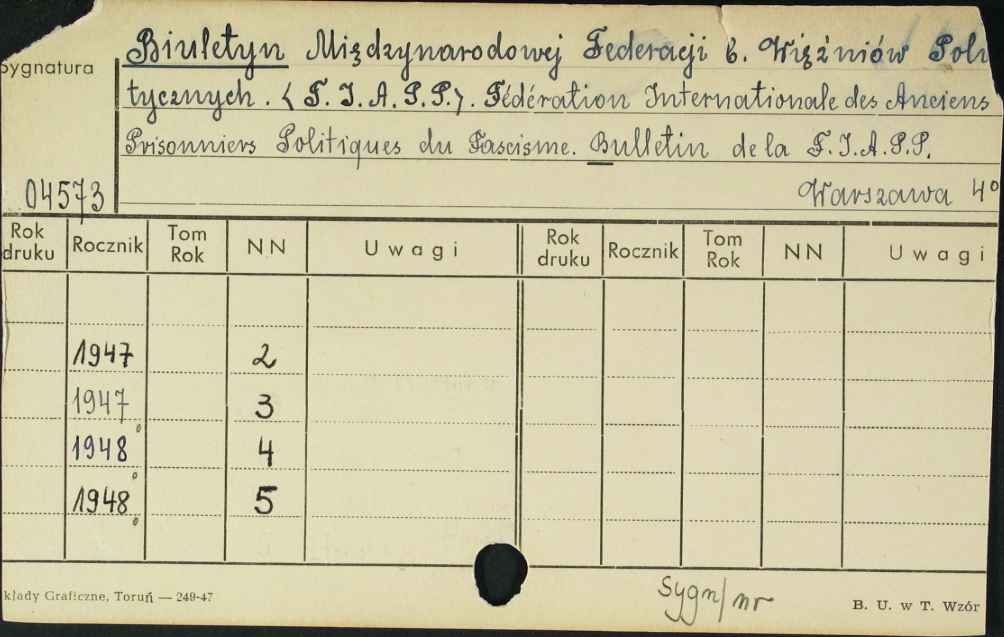 Biuletyn Międzynarodowej Federacji b. Więźniów Poli
Sygnatura
tycznych. ⟨F.I.A.P.P.⟩. Fédération Internationale des Anciens
Prisonniers Politiques du Fascisme. Bulletin de la F.I.A.P.P.
04573 Warszawa 4°
Rok druku Rocznik Tom Rok NN Uwagi Rok druku Rocznik Tom Rok NN Uwagi
1947 2
1947 3
1948 4
1948 5
sygn/nr
kłady Graficzne, Toruń — 249-47 B. U. w T. Wzór